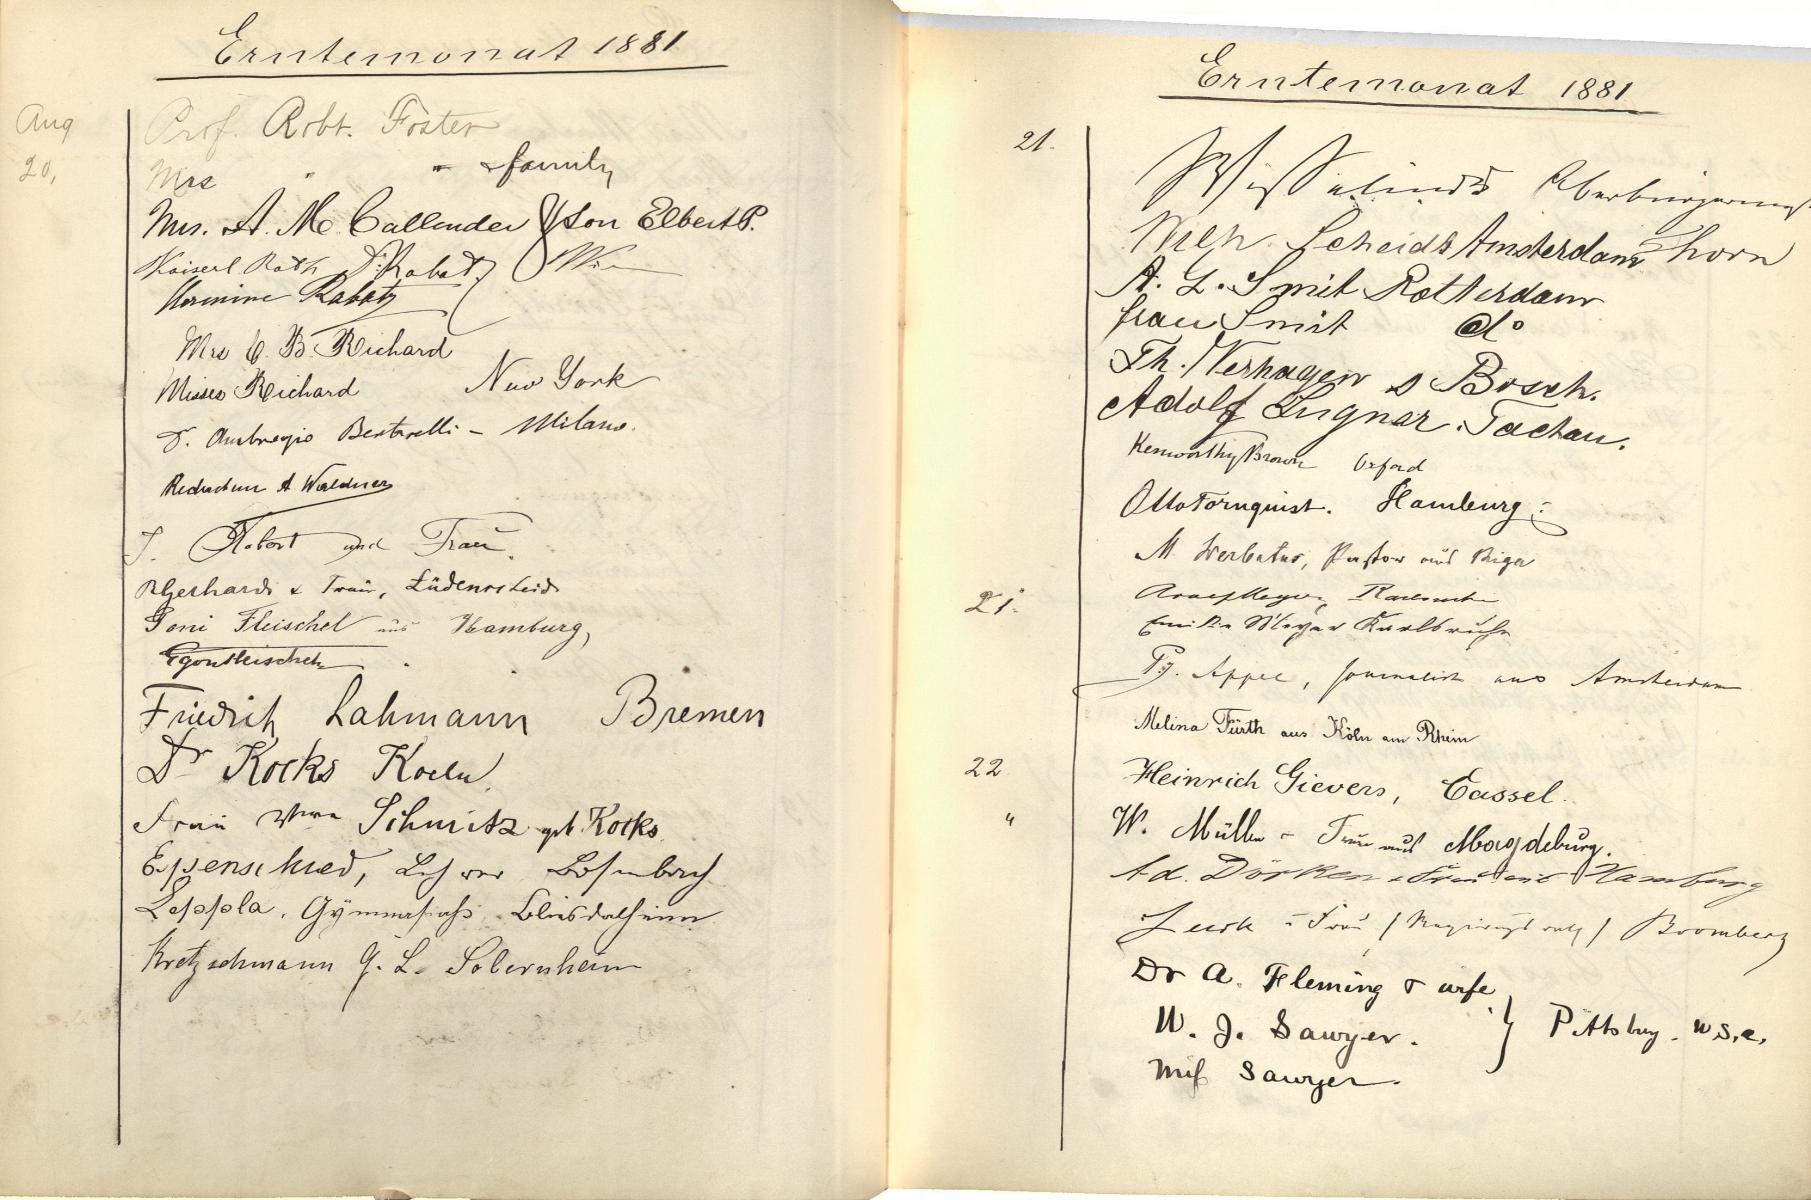 Erntemonat 1881
Aug
20,
Prof. Robt. Foster
Mrs " " & family
Mrs. A. M. Callender & Son Elbert P.
Kaiserl. Rath Dr. Rabatz Wien
Hermine Rabatz
Mrs C. B. Richard
Misses Richard New York
D. Ambrogio Bertarelli - Milano.
Redacteur A Waldner
J. Robert und Frau.
R Gerhardi & Frau, Lüdenscheid
Toni Fleischel aus Hamburg,
Egon Fleischel
Friedrich Lahmann Bremen
Dr Kocks Koeln.
Frau Schmitz geb. Kocks.
Epenschied,
Leppla.
Kretzschmann G. L. Sobernheim
Erntemonat 1881
21.
Scheidt Amsterdam
A. L. Smit Rotterdam
frau Smit do
Th. Verhagen Bosch.
Adolf Tachau.
Kenworthy Brown Oxford
Otto Tornquist. Hamburg.
M. Werbatus, Pastor aus Riga
21.
Meyer Karlsruhe
Emilie Meyer Karlsruhe
Appel, Journalist aus Amsterdam
Melina Fürth aus Köln am Rhein
22
Heinrich Gievers, Cassel.
" W. Müller & Frau aus Magdeburg.
Ad. Dörken & Frau aus Hamburg
& Frau Bromberg
Dr A. Fleming & wife
W. J. Sawyer. Pittsburg. U.S.A.
Miss Sawyer.